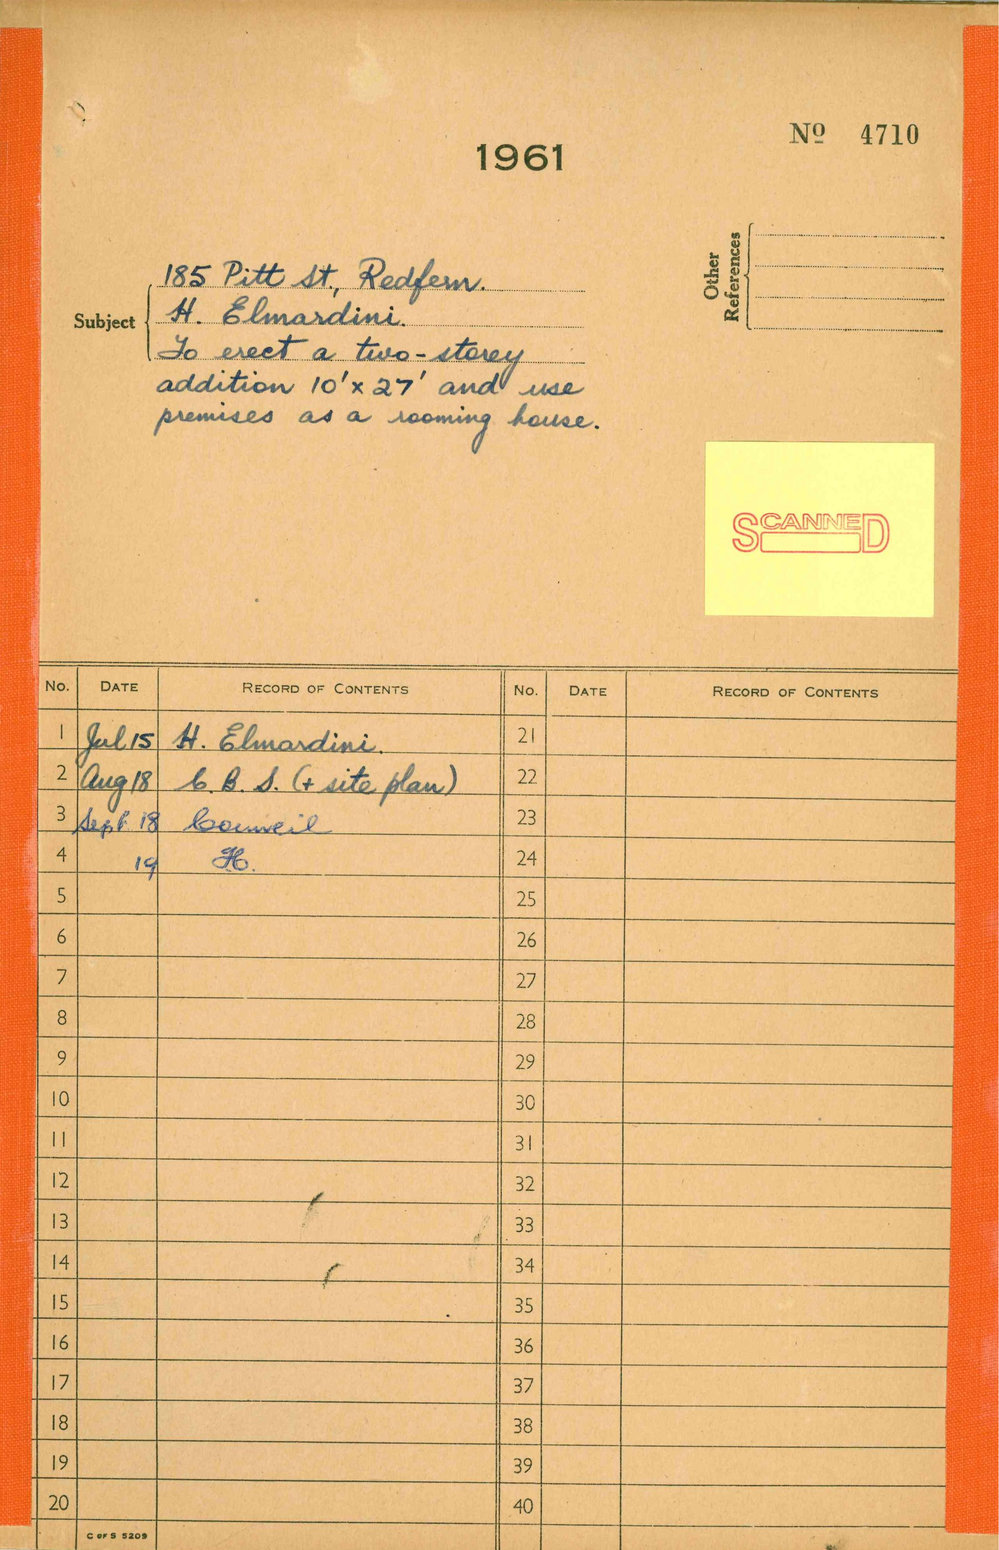 1961
Nº 4710
Other
References
Subject
185 Pitt St., Redfern.
H. Elmardini.
To erect a two-storey
addition 10'x27' and use
premises as a rooming house.
SCANNED
No. DATE RECORD OF CONTENTS No. DATE RECORD OF CONTENTS
1 Jul 15 H. Elmardini. 21
2 Aug 18 C. B. S. (+ site plan) 22
3 Sept 18 Council 23
4 19 24
5 25
6 26
7 27
8 28
9 29
10 30
11 31
12 32
13 33
14 34
15 35
16 36
17 37
18 38
19 39
20 40
C OF S 5209